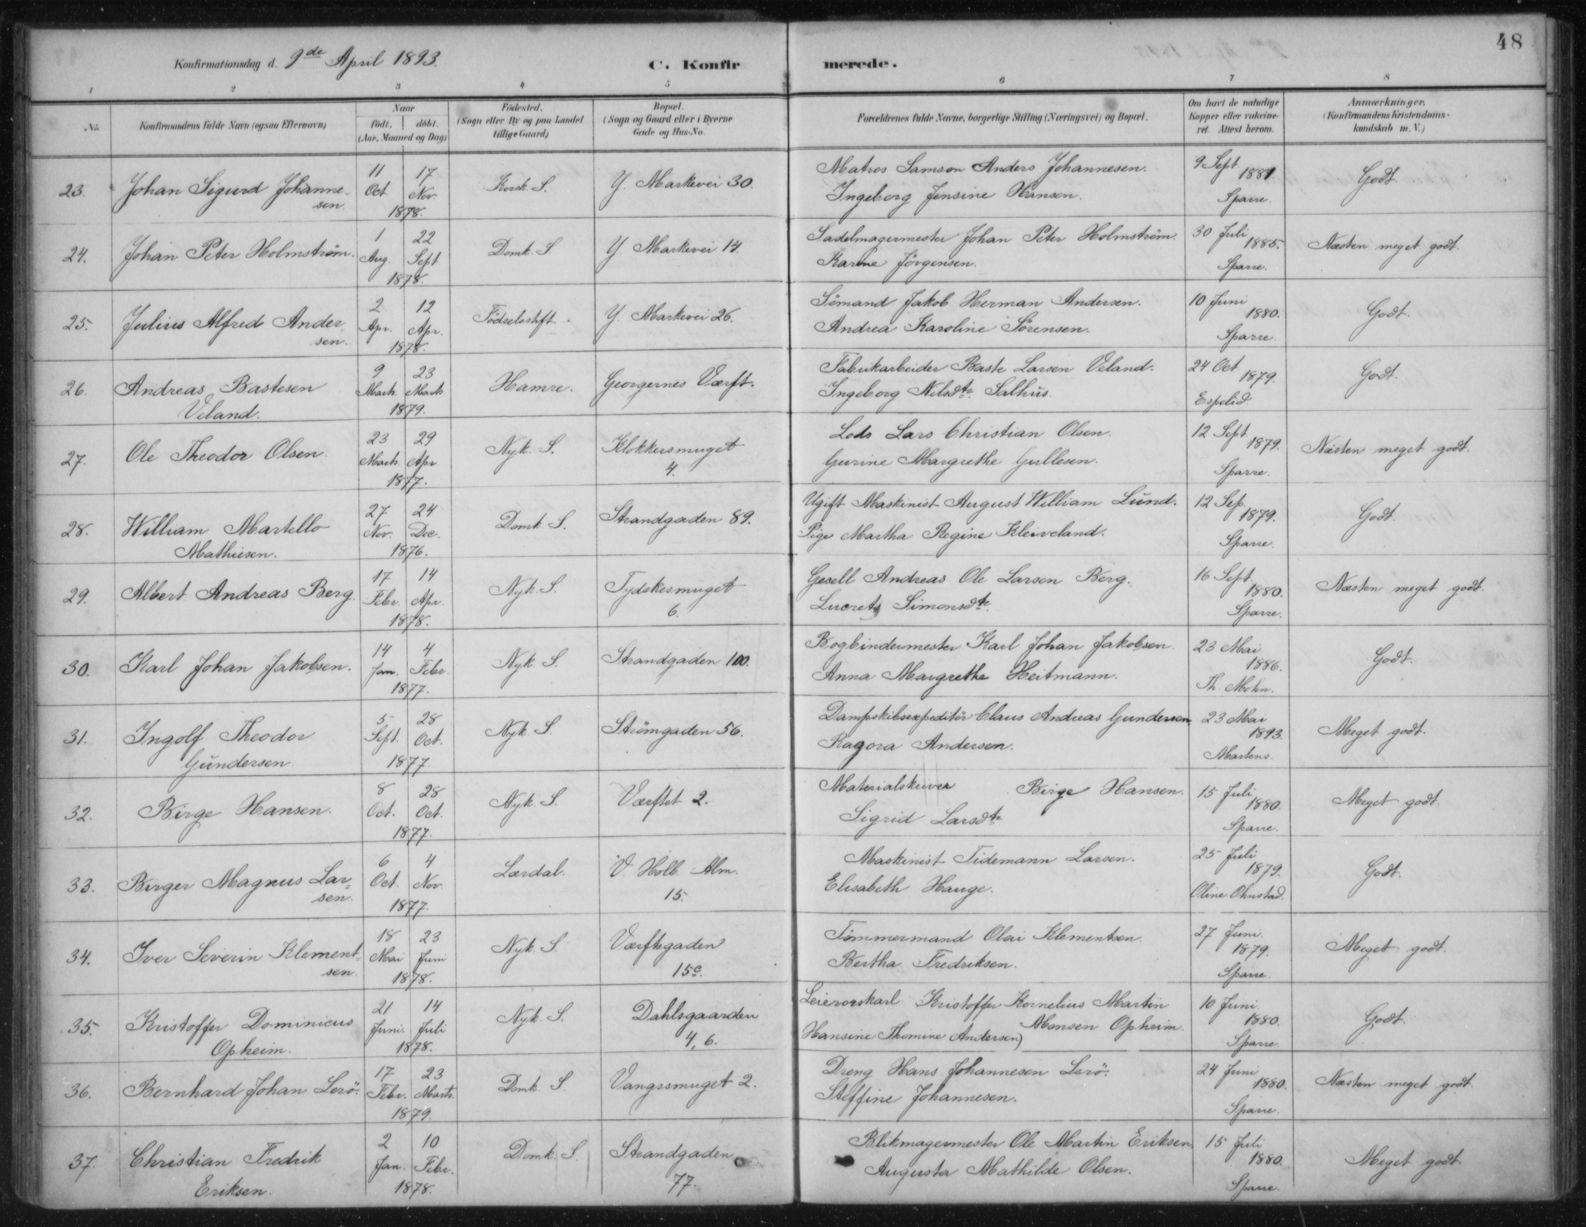 48
Konfirmationsdag d. 9de April 1893.
C. Konfirmerede.
1 2 3 4 5 6 7 8
No. Konfirmandens fulde Navn (ogsaa Efternavn) Naar født. døbt. (Aar, Maaned og Dag) Fødested. (Sogn eller By og paa Landet tillige Gaard) Bopæl. (Sogn og Gaard eller i Byerne Gade og Hus-No. Forældrenes fulde Navne, borgerlige Stilling (Næringsvei) og Bopæl. Om havt de naturlige Kopper eller vakcineret. Attest herom. Anmærkninger. (Konfirmandens Kristendomskundskab m. V.)
23. Johan Sigurd Johannesen. 11 Oct 17 Nov. 1878. Korsk. S. Y. Markevei 30. Matros Samson Anders Johannesen. Ingeborg Jensine Hansen. 9 Sept 1881 Sparre. Godt
24. Johan Peter Holmström. 1 Aug. 22 Sept 1878. Domk. S Y Markevei 14. Sadelmagermester Johan Peter Holmström. Karine Jörgensen. 30 Juli 1885. Sparre. Næsten meget godt.
25. Julius Alfred Andersen. 2 Apr. 12 Apr. 1878. Födselsstift. Y. Markevei 26. Sömand Jakob Herman Andersen. Andrea Karoline Sörensen. 10 Juni 1880. Sparre. Godt.
26. Andreas Bastesen Veland. 9 Marts 23 Marts 1879. Hamre. Georgernes Værft. Fabrikarbeider Baste Larsen Veland. Ingeborg Nelsdtr. Salhus. 24 Oct 1879. Espelid. Godt.
27. Ole Theodor Olsen. 23 Marts 29 Apr 1877. Nyk. S. Klokkersmuget 4. Lods Lars Christian Olsen. Gurine Margrethe Gullesen. 12 Sept 1879. Sparre. Næsten meget godt.
28. William Martello Mathiesen. 27 Nov. 24 Dec. 1876. Domk S. Strandgaden 89. Ugift Maskinist August William Lund. Pige Martha Regine Kleiveland. 12 Sep 1879. Sparre. Godt.
29. Albert Andreas Berg. 17 Febr. 14 Apr. 1878. Nyk. S. Tydskesmuget 6. Gesell Andreas Ole Larsen Berg. Simonsdtr. 16 Sept 1880. Sparre. Næsten meget godt.
30. Karl Johan Jakobsen. 14 Jan. 4 Febr. 1877. Nyk S. Strandgaden 100. Bogbindermester Karl Johan Jakobsen. Anna Margrethe Heitmann. 23 Mai 1886. Th. Mohn. Godt.
31. Ingolf Theodor Gundersen. 5 Sept. 28 Oct. 1877 Nyk S. Strömgaden 56. Dampskibsexpeditör Claus Andreas Gundersen Ragora Andersen. 23 Mai 1893. Martens. Meget godt.
32. Birge Hansen. 8 Oct. 28 Oct. 1877. Nyk. S. Værftet 2. Materialskriver Birge Hansen. Sigrid Larsdtr. 15 Juli 1880. Sparre. Meget godt.
33. Birger Magnus Larsen. 6 Oct. 4 Nov. 1877. Lærdal. V. Holb. Alm. 15. Maskinist Tidemann Larsen. Elisabeth Hauge. 25 Juli 1879. Oline Ohnstad. Godt.
34. Iver Severin Klementsen. 18 Mai 23 Juni 1878. Nyk S. Værftsgaden 15c. Tömmermand Olai Klementsen. Bertha Fredriksen. 27 Juni. 1879. Sparre. Meget godt.
35. Kristoffer Dominicus Opheim. 21 Juni. 14 Juli 1878. Nyk S. Dahlsgaarden 4, 6. Leiervoskarl Kristoffer Kornelius Martin Monsen Opheim. Hansine Thomine Andersen) 10 Juni 1880. Sparre Godt.
36. Bernhard Johan Lerö. 17 Febr. 23 Marts. 1879. Domk S Vangssmuget 2. Dreng Hans Johannesen Lerö. Steffine Johannesen. 24 Juni 1880. Sparre. Næsten meget godt.
37. Christian Fredrik Eriksen. 2 Jan. 10 Febr. 1878. Domk. S. Strandgaden 77. Blikmagermester Ole Martin Eriksen Augusta Mathilde Olsen. 15 Juli 1880. Sparre. Meget godt